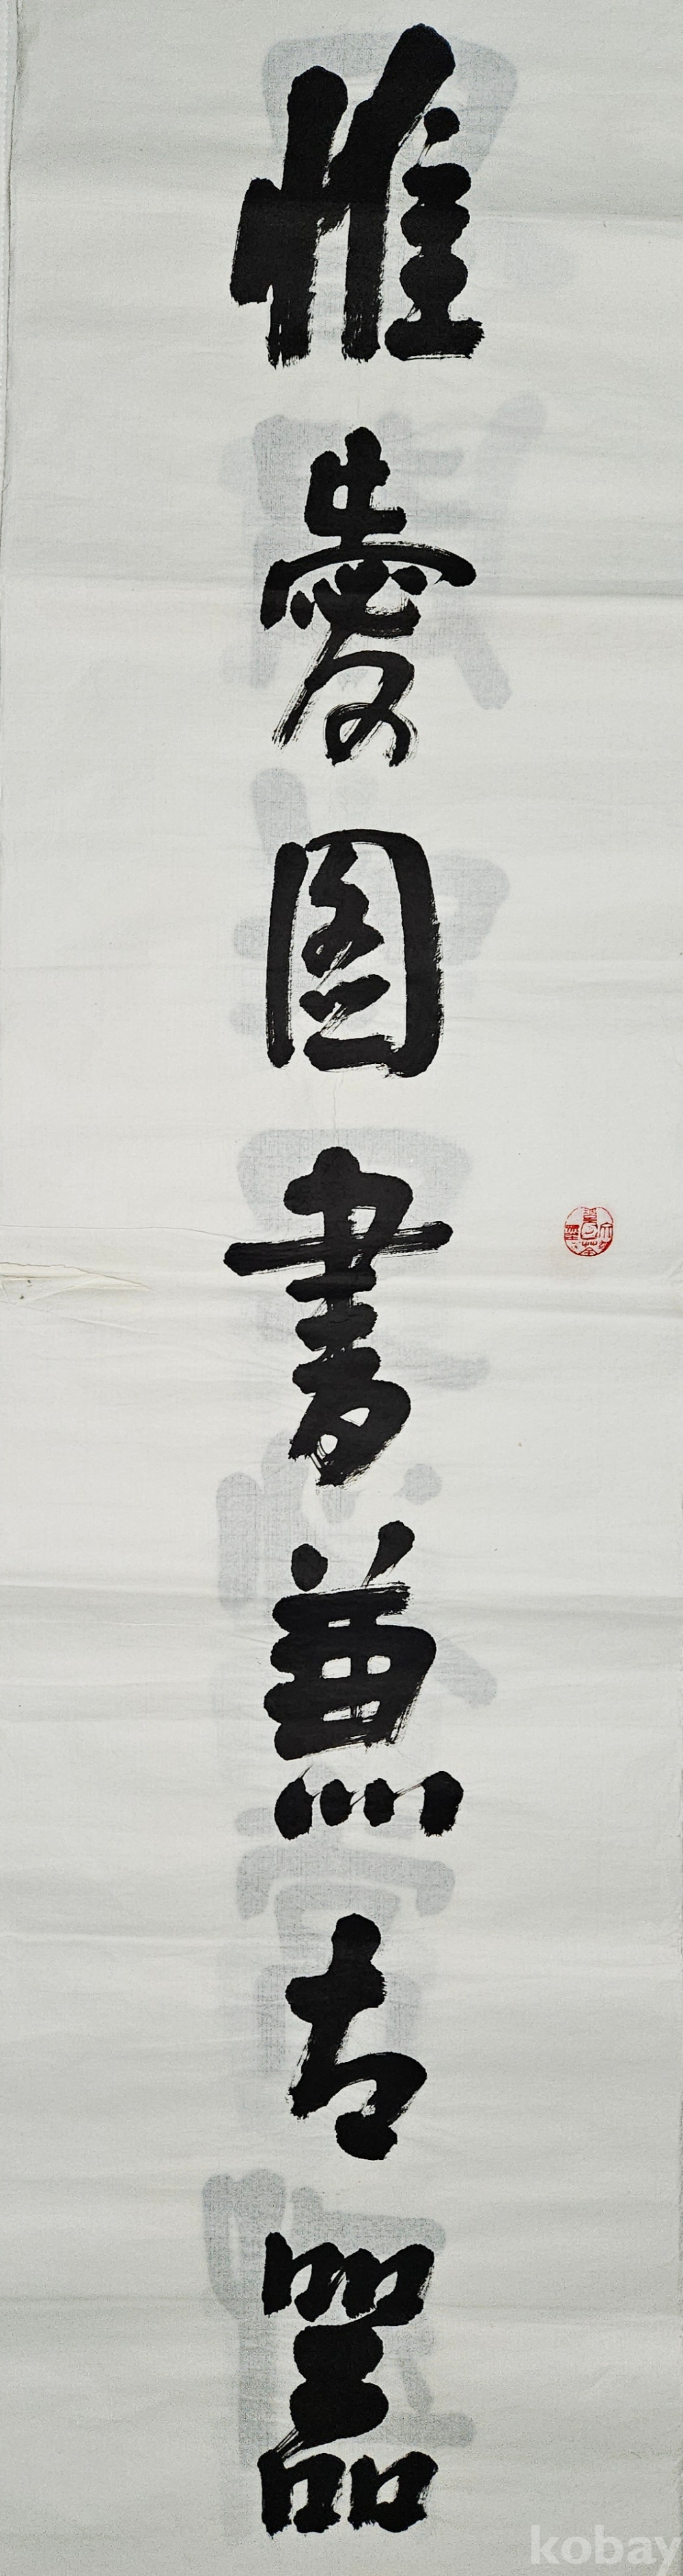 惟愛圖書兼古器
kobay